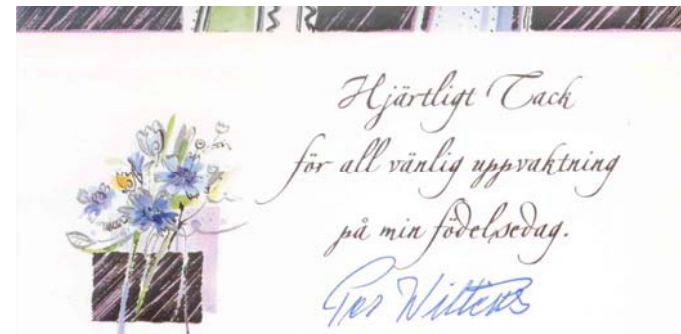 Hjärtligt Tack
för all vänlig uppvaktning
på min födelsedag.